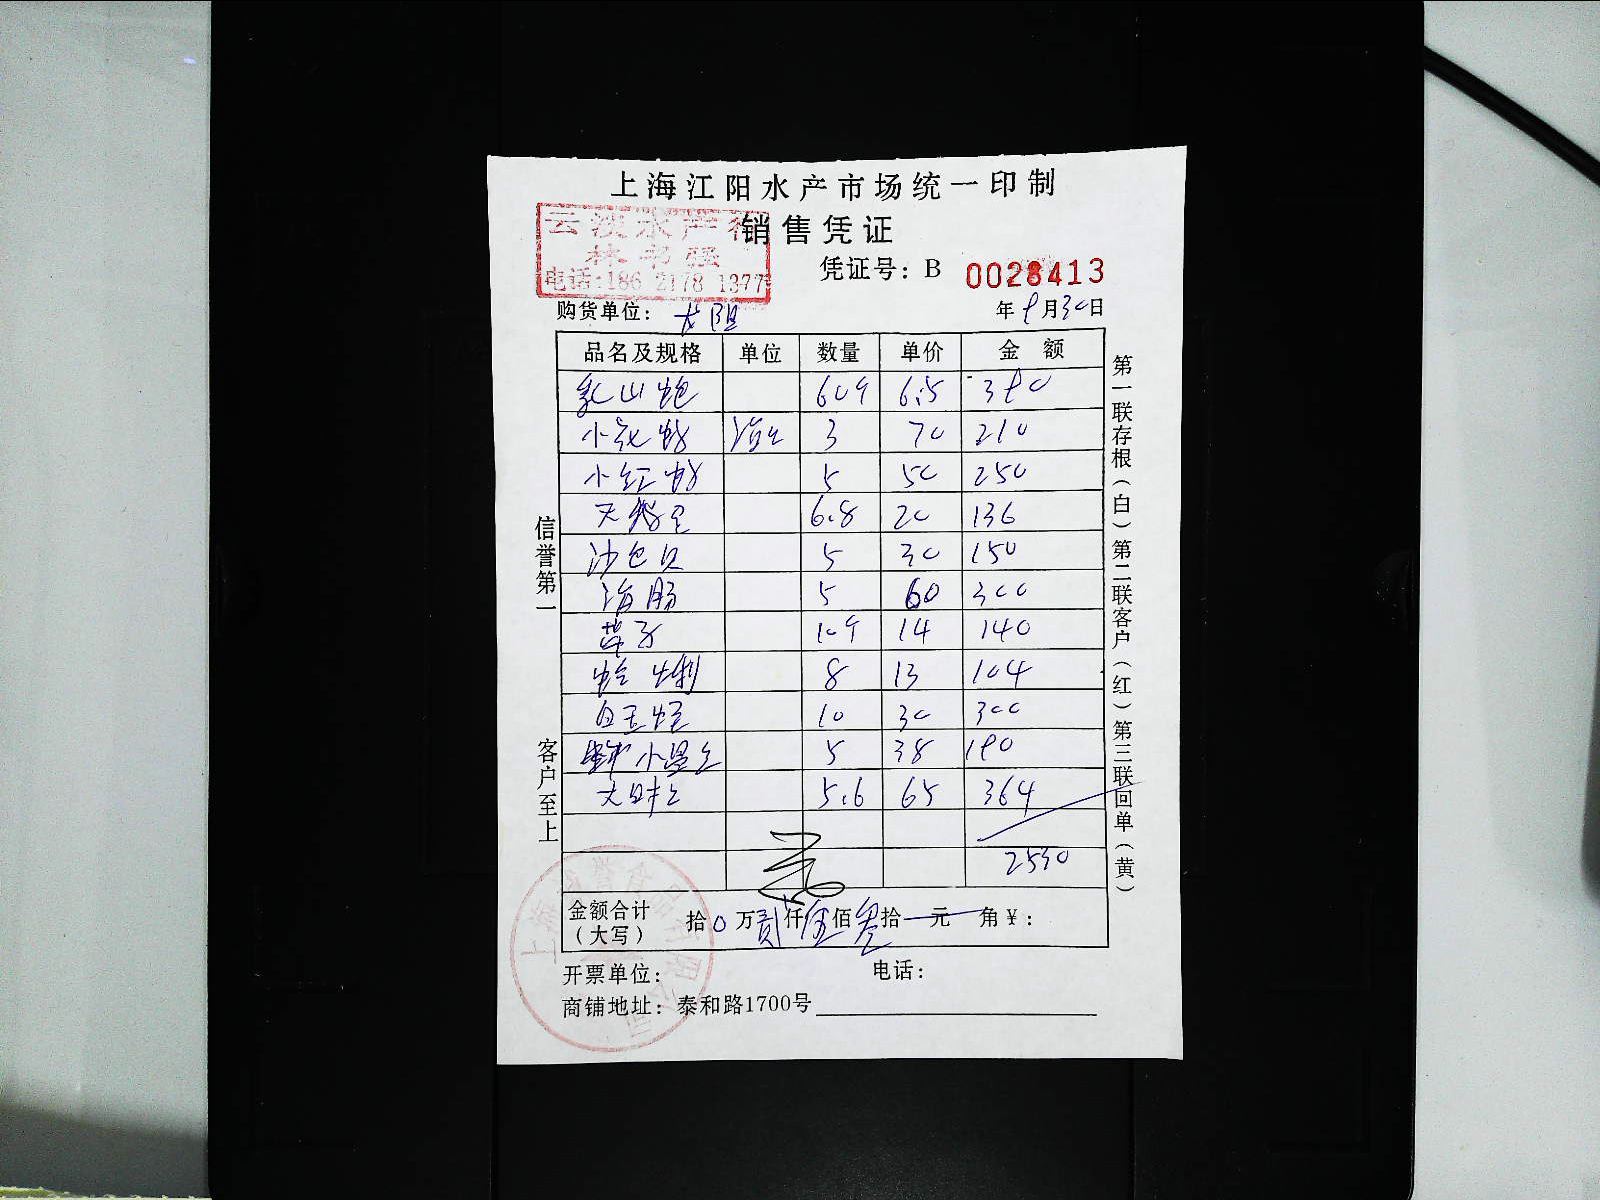 上海江阳水产市场统一印制
云淡水产行
销售凭证
林书强
电话:186 2178 1377
凭证号：B 0028413
购货单位：
年 9月30日
品名及规格 单位 数量 单价 金额
乳山蚝 60个 6.5 390
小花蛤 3 70 210
小红蛤 5 50 250
天鹅蛋 6.8 20 136
沙包贝 5 30 150
海肠 5 60 300
10个 14 140
8 13 104
白玉蛏 10 30 300
5 38 190
5.6 65 364
2530
金额合计
（大写） 拾0万贰仟伍佰叁拾一元 角￥：
开票单位： 电话：
商铺地址：泰和路1700号
信誉第一
客户至上
第一联存根（白）第二联客户（红）第三联回单（黄）